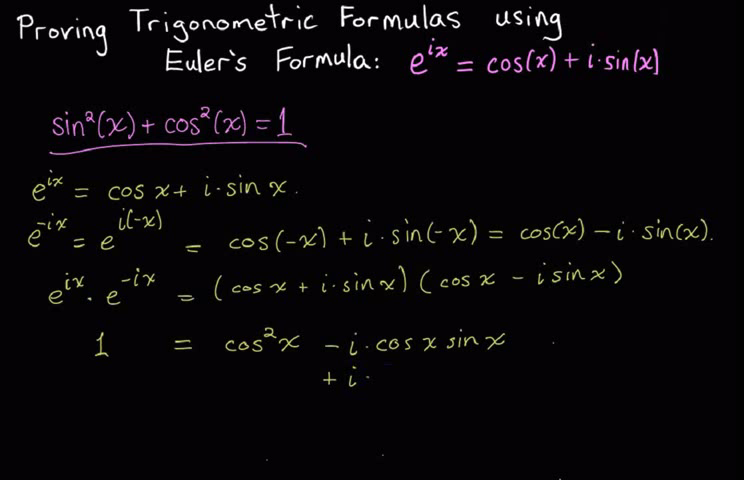 Proving Trigonometric Formulas using
Euler's Formula: e^{ix} = cos(x) + i·sin(x)
sin²(x) + cos²(x) = 1
e^{ix} = cos x + i·sin x.
e^{-ix} = e^{i(-x)} = cos(-x) + i·sin(-x) = cos(x) - i·sin(x).
e^{ix} · e^{-ix} = (cos x + i·sin x)(cos x - i sin x)
1 = cos²x - i·cos x sin x
+ i·